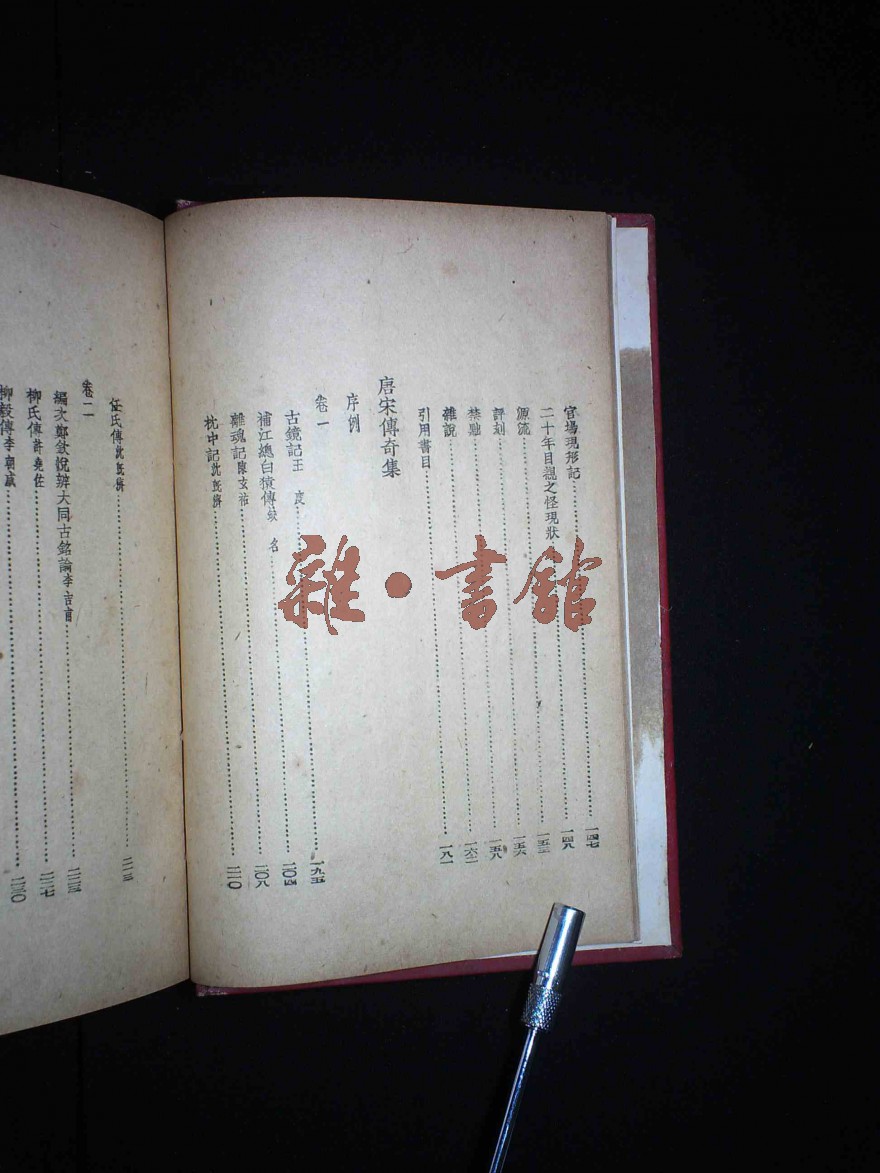 官場現形記 一四七
二十年目覩之怪現狀 一四八
源流 一五三
評刻 一五六
禁黜 一五八
雜說 一六三
引用書目 一八一
唐宋傳奇集
序例
卷一 一九五
古鏡記王 度 二〇四
補江總白猿傳缺 名 二〇八
離魂記陳玄祐
枕中記沈既濟 二一〇
任氏傳沈既濟 二一三
卷二
編次鄭欽悅辨大同古銘論李吉甫 二二三
柳氏傳許堯佐 二二七
柳毅傳李朝威 二三〇
雜·書館